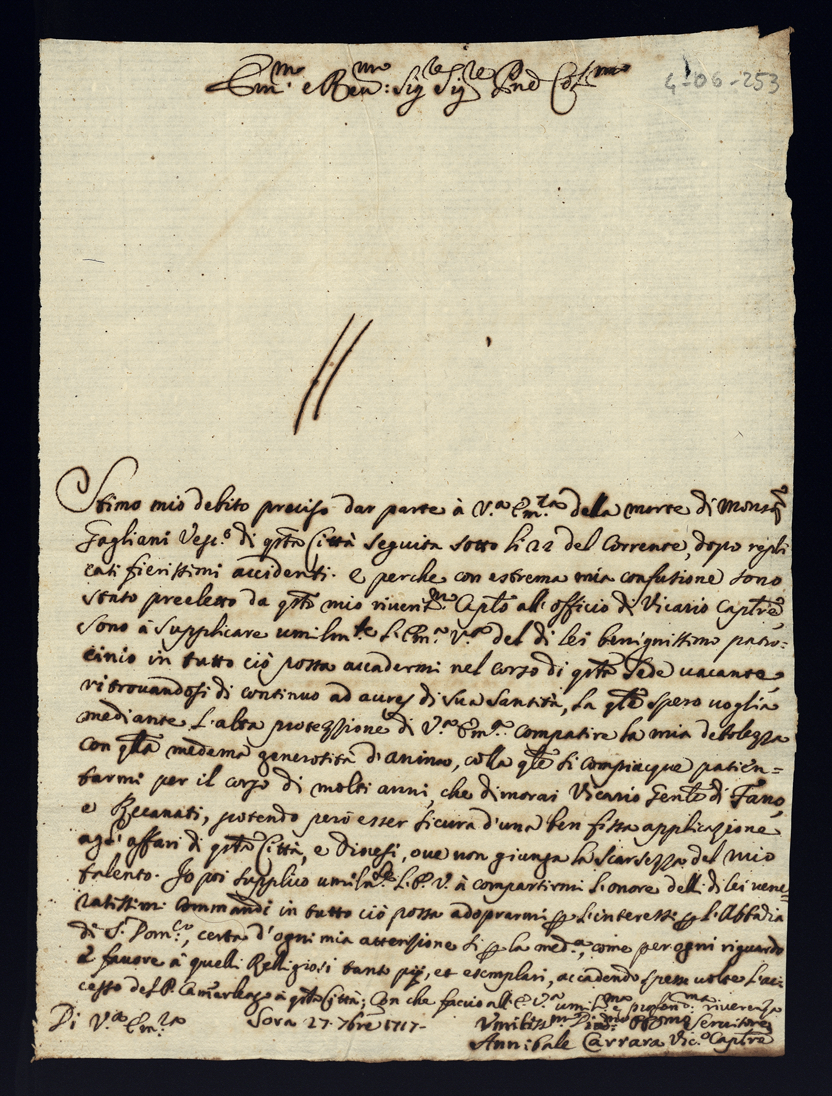 Em.mo e Rev.mo Sig.re Sig.re P.ne Col.mo
4-06-253
Stimo mio debito preciso dar parte à V.a Em.za della morte di Mons.r
Gagliani Vesc.o di q.sta Città seguita sotto li 22 del Corrente, dopo repli
cati fierissimi accidenti. e perche con estrema mia confusione sono
stato preeletto da q.sto mio riverit.mo Cap.lo all'officio di Vicario Cap.re
sono à supplicare umilm.te l'Em.a V.a del di lei benignissimo patro-
cinio in tutto ciò possa accadermi nel corso di q.sta Sede vacante
ritrovandosi di continuo ad aures di Sua Santità, la q.le spero voglia
mediante l'alta protezzione di V.a Em.a compatire la mia debolezza
con q.lla medema generosità d'animo, colla q.le si compiacque patien=
tarmi per il corso di molti anni, che dimorai Vicario Gen.le di Fano,
e Recanati, potendo però esser sicura d'una ben fissa applicazione
agl'affari di q.sta Città, e Diocesi, ove non giunga la scarsezza del mio
talento. Io poi supplico umilm.te l'E.V. à compartirmi l'onore delli di lei vene=
ratissimi Commandi in tutto ciò possa adoprarmi p l'interessi p l'Abbadia
di S. Dom.co, certa d'ogni mia attenzione sì p la med.a, come per ogni riguardo
e favore à quelli Religiosi tanto pij, et esemplari, accadendo spesse volte l'ac-
cesso del P. Camerlengo à q.sta Città; Con che faccio all'E. V.a um.ma profond.ma riverenza
Di V.a Em.za Sora 27. 7bre 1717- Umiliss.mo Div.mo Obb.mo Servitore
Annibale Carrara Vic.o Cap.re